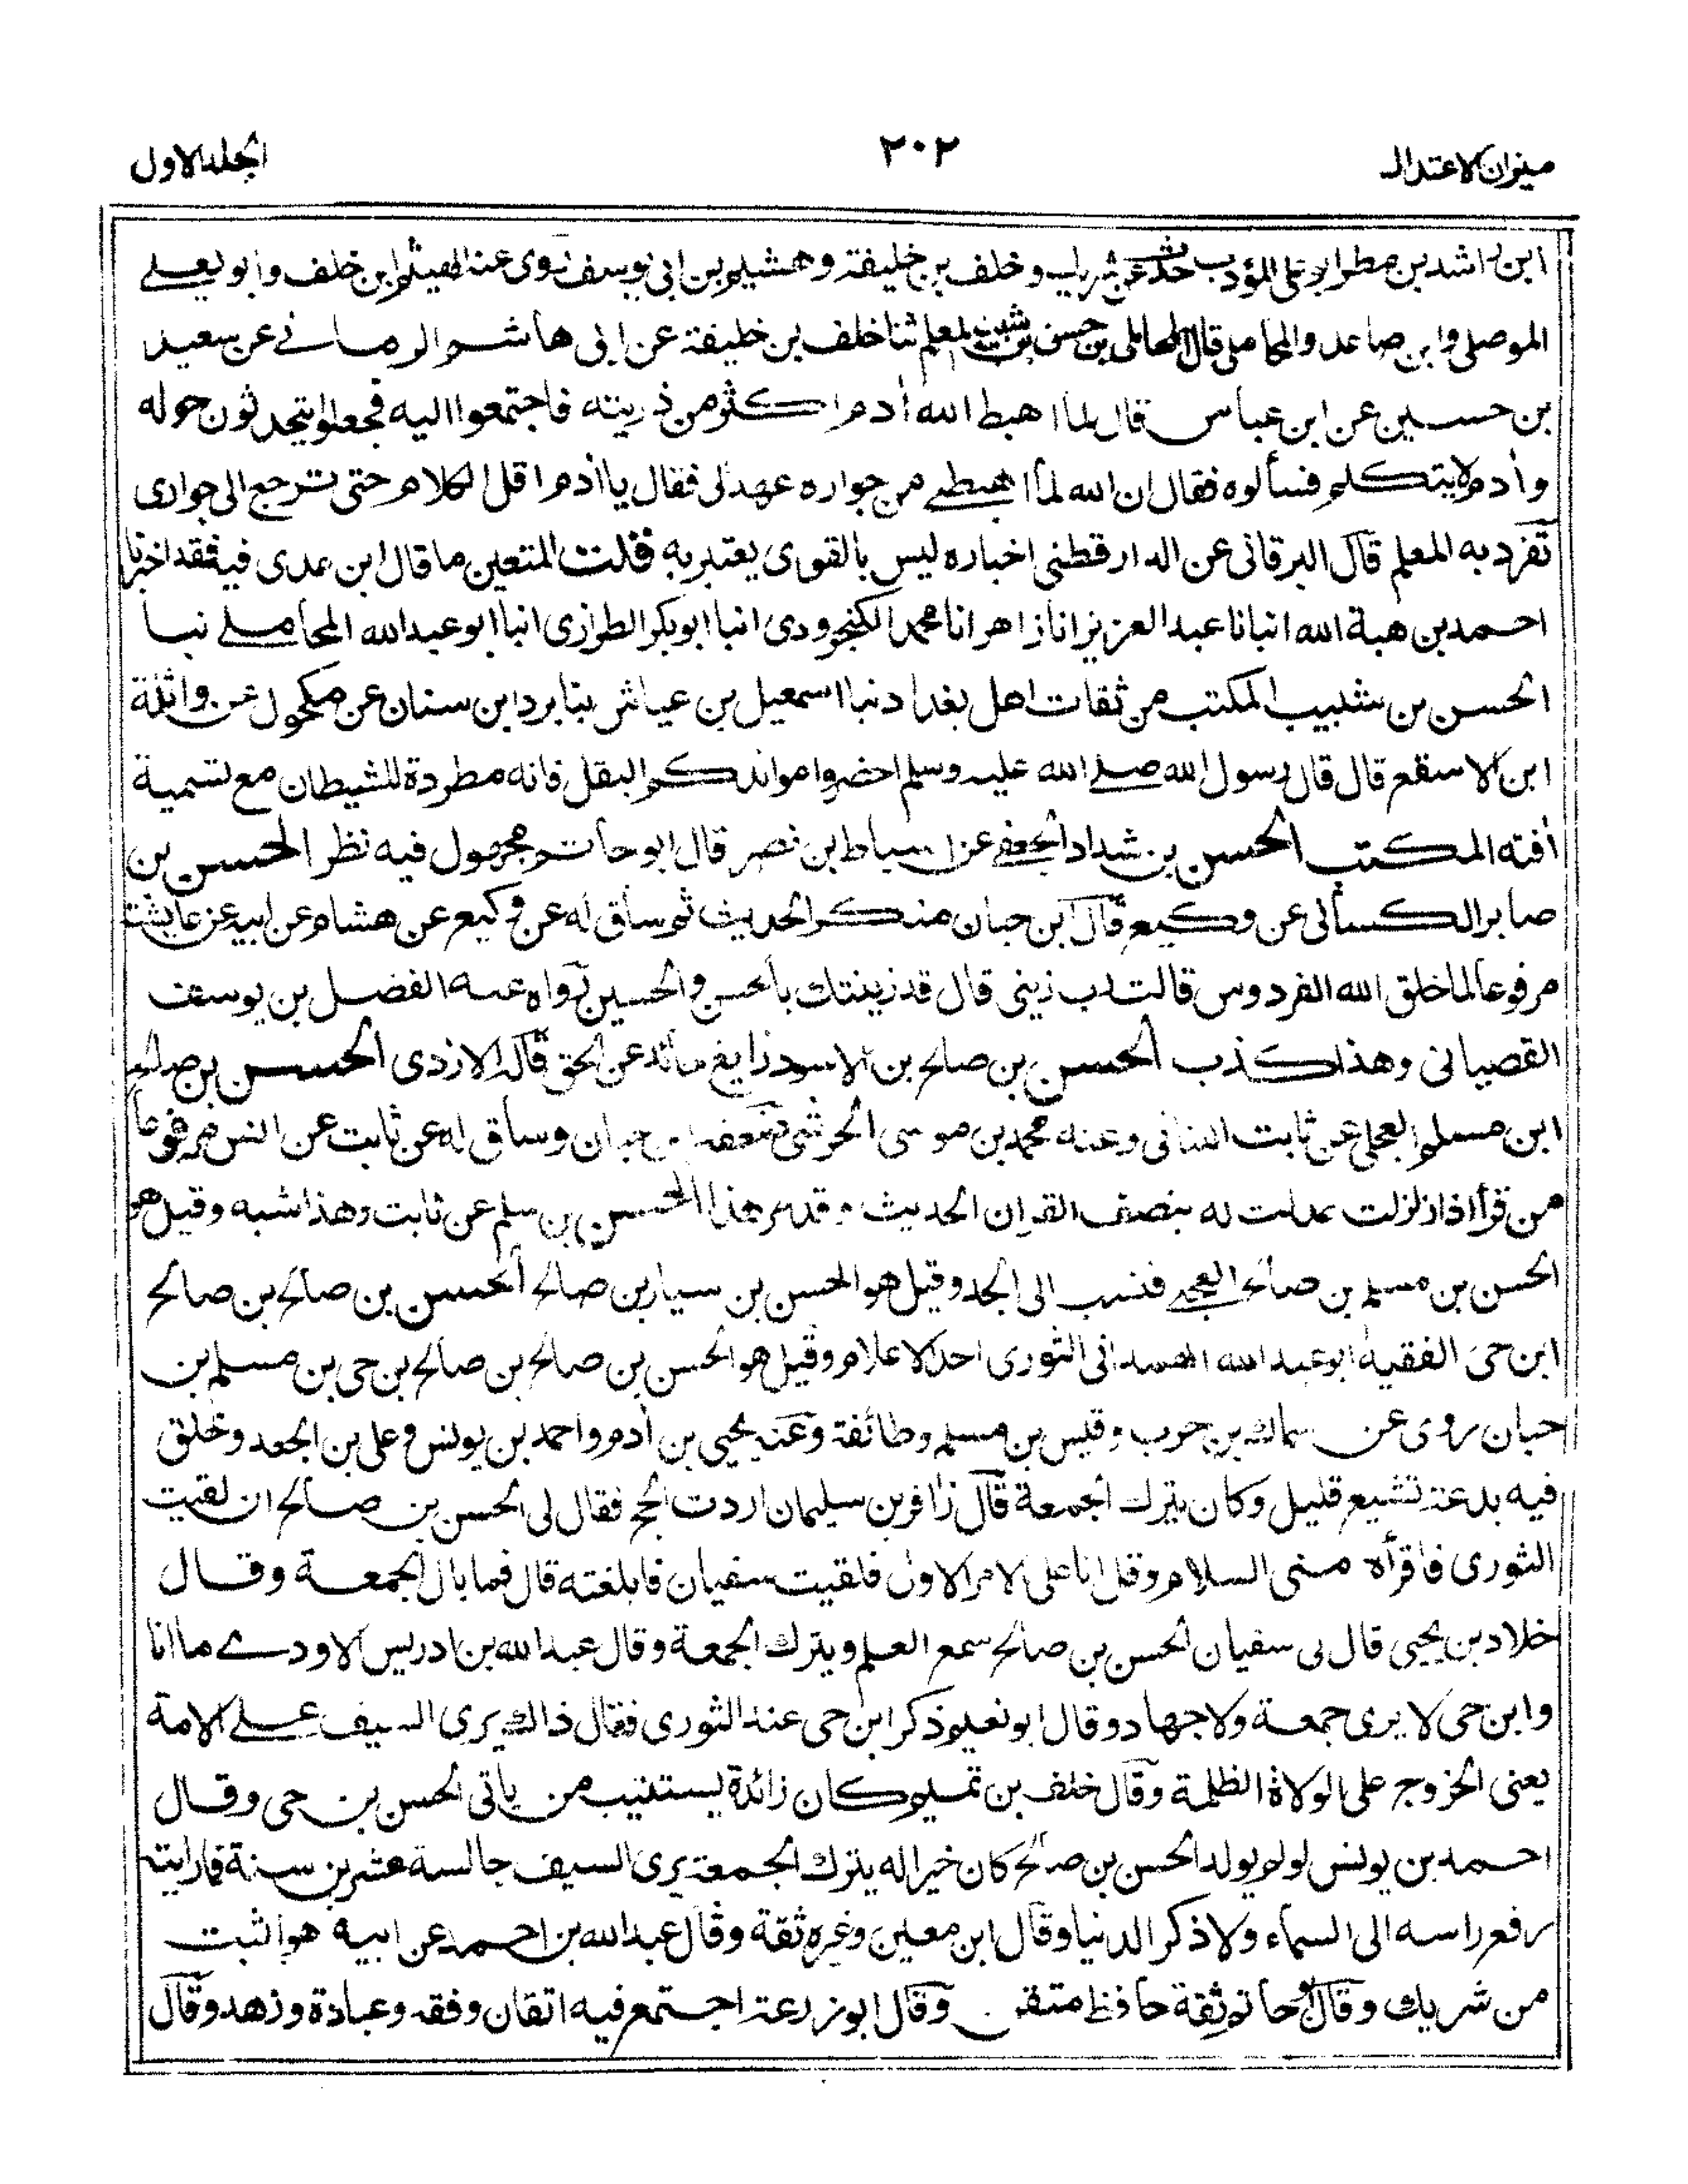 ميزان الاعتدال
٢٠٢
الجلد الاول
ابن راشد بن مطر ابو على المؤدب حدث عن شريك وخلف بن خليفة وهشيم بن ابى يوسف روى عنه الهيثم ابن خلف وابو يعلى
الموصلى وابن صاعد والمحاملى قال المحاملى بن حسن بن شبيب المعلم ثنا خلف بن خليفة عن ابى هاشم الرمانے عن سعيد
بن حسين عن ابن عباس قال لما اهبط الله اٰدم اكثر من ذريته فاجتمعوا اليه فجعلوا يتحدثون حوله
واٰدم لا يتكلم فسألوه فقال ان الله لما اهبطنے من جواره عهد لى فقال يا اٰدم اقل الكلام حتى ترجع الى جوارى
تفرد به المعلم قال البرقانى عن الدارقطنى اخباره ليس بالقوى يعتبر به قلت المتعين ما قال ابن عدى فيه فقد اخبرنا
احمد بن هبة الله انبانا عبد العزيز انا زاهر انا محمد الكنجرودى انبا ابو بكر الطرازى انبا ابو عبد الله المحاملے نبا
الحسن بن شبيب المكتب من ثقات اهل بغداد نبا اسمعيل بن عياش بنا برد ابن سنان عن مكحول عن واثلة
ابن الاسقع قال قال رسول الله صلے الله عليه وسلم احضروا موائدكم البقل فانه مطردة للشيطان مع تسمية
اٰفته المكتب الحسن بن شداد الجعفے عن اسباط بن نصر قال ابو حاتم مجهول فيه نظر الحسن بن
صابر الكسائى عن وكيع قال ابن حبان منكر الحديث ثم ساق له عن وكيع عن هشام عن ابيه عن عايشة
مرفوعا لما خلق الله الفردوس قالت رب زينى قال قد زينتك بالحسن والحسين رواه عنه الفضل بن يوسف
القصبانى وهذا كذب الحسن بن صالح بن الاسود زايغ مائد عن الحق قاله الازدى الحسن بن صالح
ابن مسلم العجلى عن ثابت البنانى وعنه محمد بن موسى الحرشى ضعفه ابن حبان وساق له عن ثابت عن انس مرفوعا
من قرأ اذا زلزلت عدلت له بنصف القران الحديث وقد مر هذا الحسن بن سلم عن ثابت وهذا شبه وقيل هو
الحسن بن مسلم بن صالح العجلے فنسب الى الجد وقيل هو الحسن بن سيار بن صالح الحسن بن صالح بن صالح
ابن حى الفقيه ابو عبد الله الهمدانى الثورى احد الاعلام وقيل هو الحسن بن صالح بن صالح بن حى بن مسلم بن
حبان روى عن سماك بن حرب وقيس بن مسلم وطائفة وعنه يحيى بن اٰدم واحمد بن يونس وعلى بن الجعد وخلق
فيه بدعة تشيع قليل وكان يترك الجمعة قال زافر بن سليمان اردت الحج فقال لى الحسن بن صالح ان لقيت
الثورى فاقرأه منى السلام وقل انا على الامر الاول فلقيت سفيان فابلغته قال فما بال الجمعة وقال
خلاد بن يحيى قال لى سفيان الحسن بن صالح سمع العلم ويترك الجمعة وقال عبد الله بن ادريس الاودے ما انا
وابن حى لا يرى جمعة ولا جهاد وقال ابو نعيم ذكر ابن حى عند الثورى فقال ذاك يرى السيف علے الامة
يعنى الخروج على الولاة الظلمة وقال خلف بن تميم كان زائدة يستتيب من ياتى الحسن بن حى وقال
احمد بن يونس لو لم يولد الحسن بن صالح كان خيرا له يترك الجمعة يرى السيف جالسة عشرين سنة فما رايته
رفع راسه الى السماء ولا ذكر الدنيا وقال ابن معين وغيره ثقة وقال عبد الله بن احمد عن ابيه هو اثبت
من شريك وقال ابو حاتم ثقة حافظ متقن وقال ابو زرعة اجتمع فيه اتقان وفقه وعبادة وزهد وقال